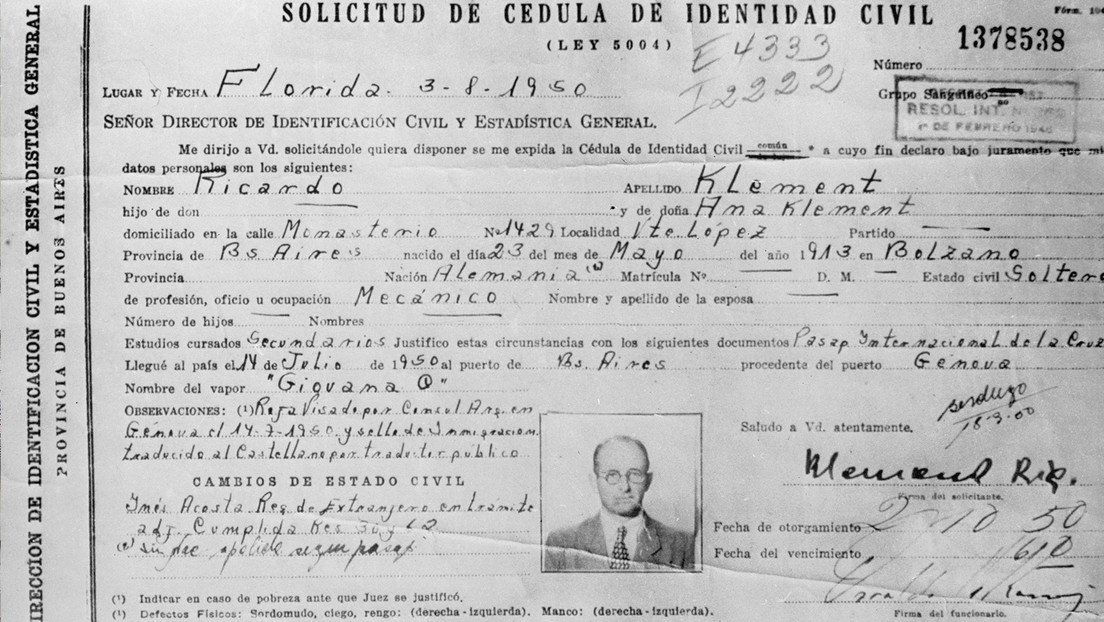 DIRECCION DE IDENTIFICACION CIVIL Y ESTADISTICA GENERAL
PROVINCIA DE BUENOS AIRES
SOLICITUD DE CEDULA DE IDENTIDAD CIVIL
(LEY 5004)
Fórm.
E 4333
I 2222
1378538
Número
Grupo Sanguíneo
RESOL. INT.
1º DE FEBRERO 1946
LUGAR Y FECHA Florida. 3-8-1950
SEÑOR DIRECTOR DE IDENTIFICACIÓN CIVIL Y ESTADÍSTICA GENERAL.
Me dirijo a Vd. solicitándole quiera disponer se me expida la Cédula de Identidad Civil común * a cuyo fin declaro bajo juramento que mis
datos personales son los siguientes:
NOMBRE Ricardo APELLIDO Klement
hijo de don y de doña Ana Klement
domiciliado en la calle Monasterio Nº 1429 Localidad Vte López Partido
Provincia de Bs Aires nacido el día 23 del mes de Mayo del año 1913 en Bolzano
Provincia Nación Alemania Matrícula Nº. D. M. Estado civil Soltero
de profesión, oficio u ocupación Mecánico Nombre y apellido de la esposa
Número de hijos Nombres
Estudios cursados Secundarios Justifico estas circunstancias con los siguientes documentos Pasap. Internacional de la Cruz
Llegué al país el 14 de Julio de 1950 al puerto de Bs. Aires procedente del puerto Génova
Nombre del vapor "Giovana C"
OBSERVACIONES: (1) Roja Visado por Consul Arg. en
Génova el 14-7-1950. y sello de Inmigracion
traducido al Castellano por traductor publico
Saludo a Vd. atentamente.
CAMBIOS DE ESTADO CIVIL
Firma del solicitante.
Inés Acosta Reg. de Extranjero en tramite
adj. Cumplida Res
Fecha de otorgamiento 2 10 50
Fecha del vencimiento
(¹) Indicar en caso de pobreza ante que Juez se justificó.
(¹) Defectos Físicos: Sordomudo, ciego, rengo: (derecha-izquierda). Manco: (derecha-izquierda).
Firma del funcionario.